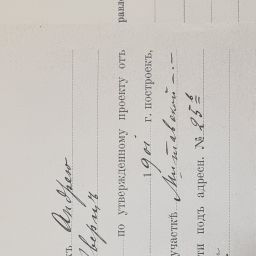 равле
къ Андрею
по утвержденному проекту отъ
190i г. построекъ,
участкѣ Митавской
ти подъ адресн. № 25б